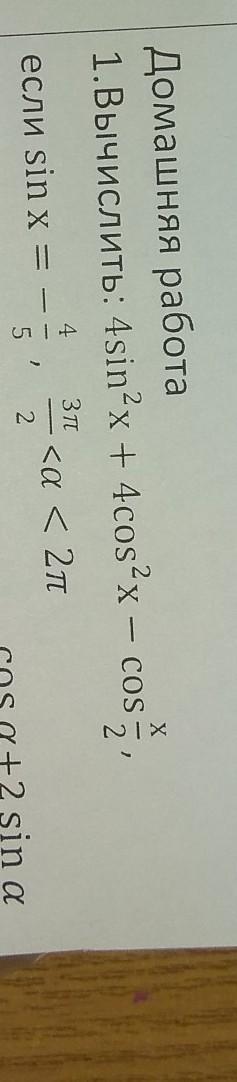 Домашняя работа
1.Вычислить: 4sin²x + 4cos²x − cos x/2 ,
если sin x = − 4/5 , 3π/2 <α < 2π
cos α+2 sin α